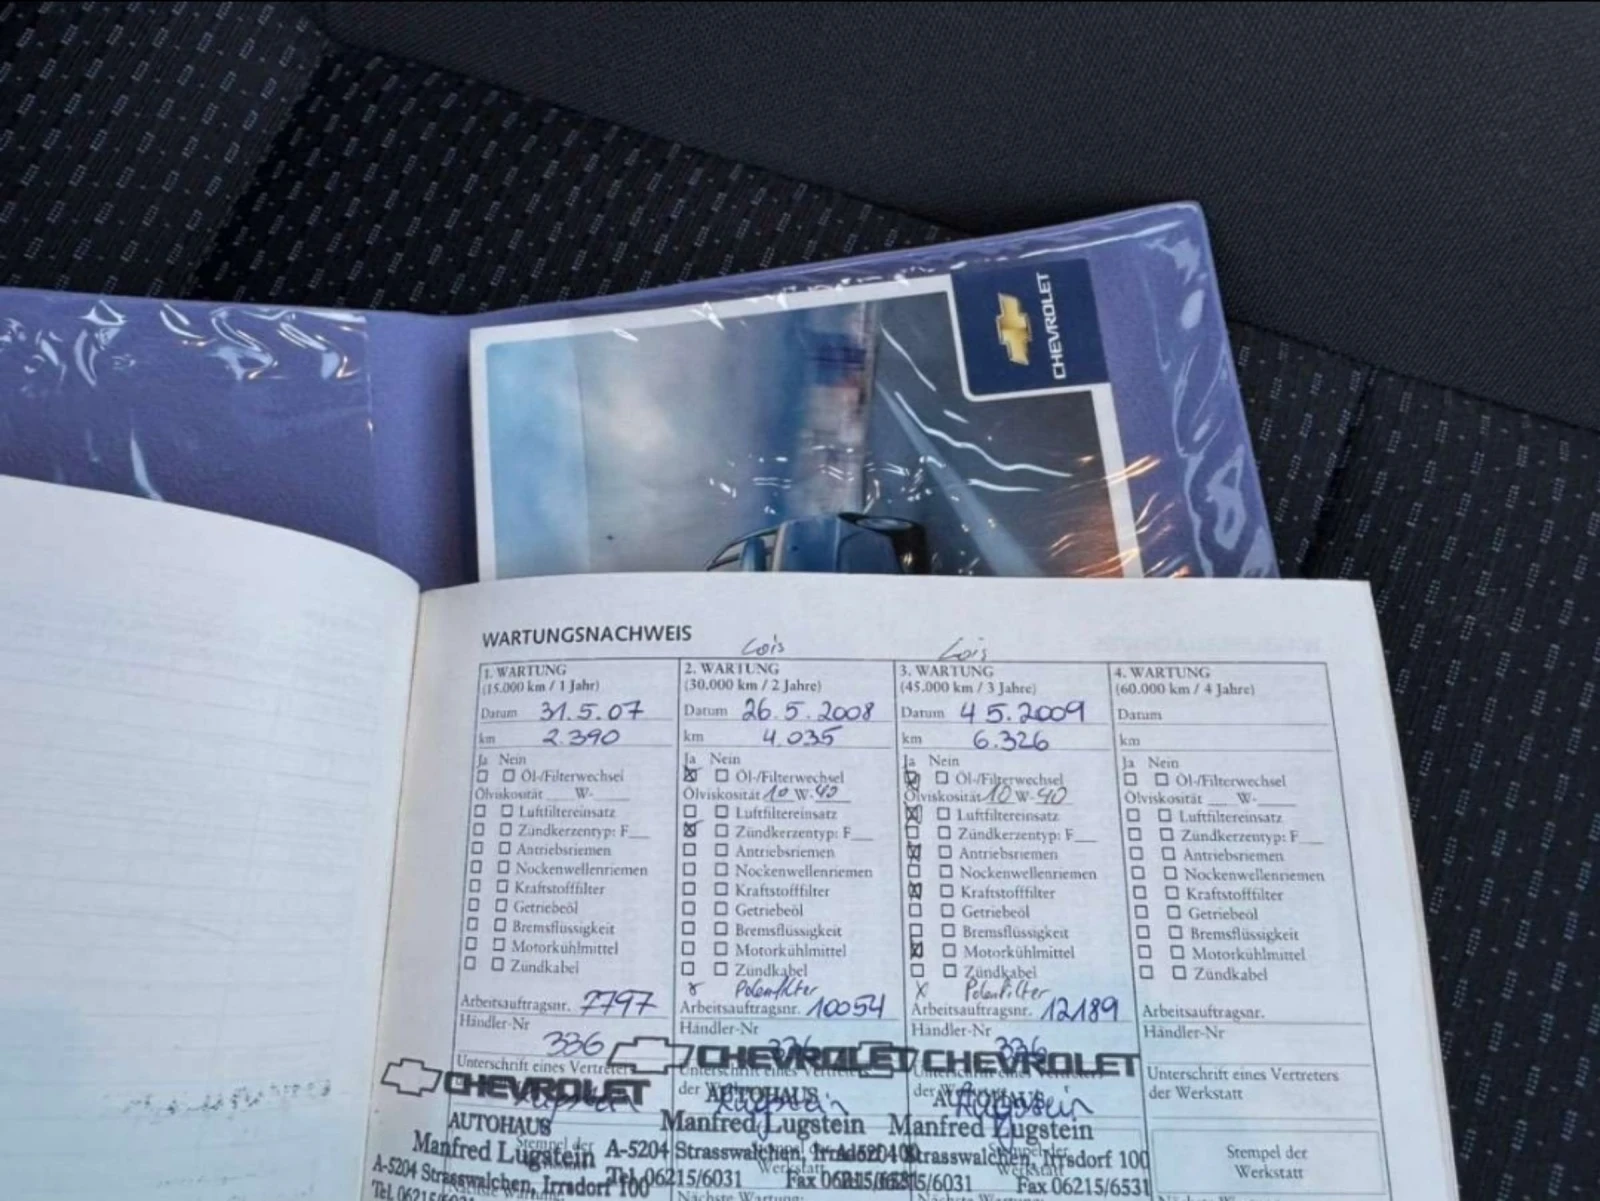 CHEVROLET
WARTUNGSNACHWEIS
Lois
Lois
1. WARTUNG
(15.000 km / 1 Jahr)
Datum 31.5.07
km 2.390
Ja Nein
Öl-/Filterwechsel
Ölviskosität ___ W-___
Luftfiltereinsatz
Zündkerzentyp: F__
Antriebsriemen
Nockenwellenriemen
Kraftstofffilter
Getriebeöl
Bremsflüssigkeit
Motorkühlmittel
Zündkabel
Arbeitsauftragsnr. 7797
Händler-Nr
336
Unterschrift eines Vertreters
CHEVROLET
AUTOHAUS
Manfred Lugstein
Stempel der
A-5204 Strasswalchen, Irrsdorf 100
2. WARTUNG
(30.000 km / 2 Jahre)
Datum 26.5.2008
km 4.035
Ja Nein
Öl-/Filterwechsel
Ölviskosität 10 W-40
Luftfiltereinsatz
Zündkerzentyp: F__
Antriebsriemen
Nockenwellenriemen
Kraftstofffilter
Getriebeöl
Bremsflüssigkeit
Motorkühlmittel
Zündkabel
x Polenfilter
Arbeitsauftragsnr. 10054
Händler-Nr
336
CHEVROLET
Unterschrift eines Vertreters
AUTOHAUS
Manfred Lugstein
A-5204 Strasswalchen,
Werkstatt
Tel. 06215/6031 Fax
Nächste Wartung:
3. WARTUNG
(45.000 km / 3 Jahre)
Datum 4 5.2009
km 6.326
Ja Nein
Öl-/Filterwechsel
Ölviskosität 10 W-40
Luftfiltereinsatz
Zündkerzentyp: F__
Antriebsriemen
Nockenwellenriemen
Kraftstofffilter
Getriebeöl
Bremsflüssigkeit
Motorkühlmittel
Zündkabel
x Polenfilter
Arbeitsauftragsnr. 12189
Händler-Nr
336
CHEVROLET
Unterschrift eines Vertreters
AUTOHAUS
Manfred Lugstein
Strasswalchen, Irrsdorf 100
Werkstatt
Fax 06215/6531
Nächste Wartung:
4. WARTUNG
(60.000 km / 4 Jahre)
Datum
km
Ja Nein
Öl-/Filterwechsel
Ölviskosität ___ W-___
Luftfiltereinsatz
Zündkerzentyp: F__
Antriebsriemen
Nockenwellenriemen
Kraftstofffilter
Getriebeöl
Bremsflüssigkeit
Motorkühlmittel
Zündkabel
Arbeitsauftragsnr.
Händler-Nr
Unterschrift eines Vertreters
der Werkstatt
Stempel der
Werkstatt